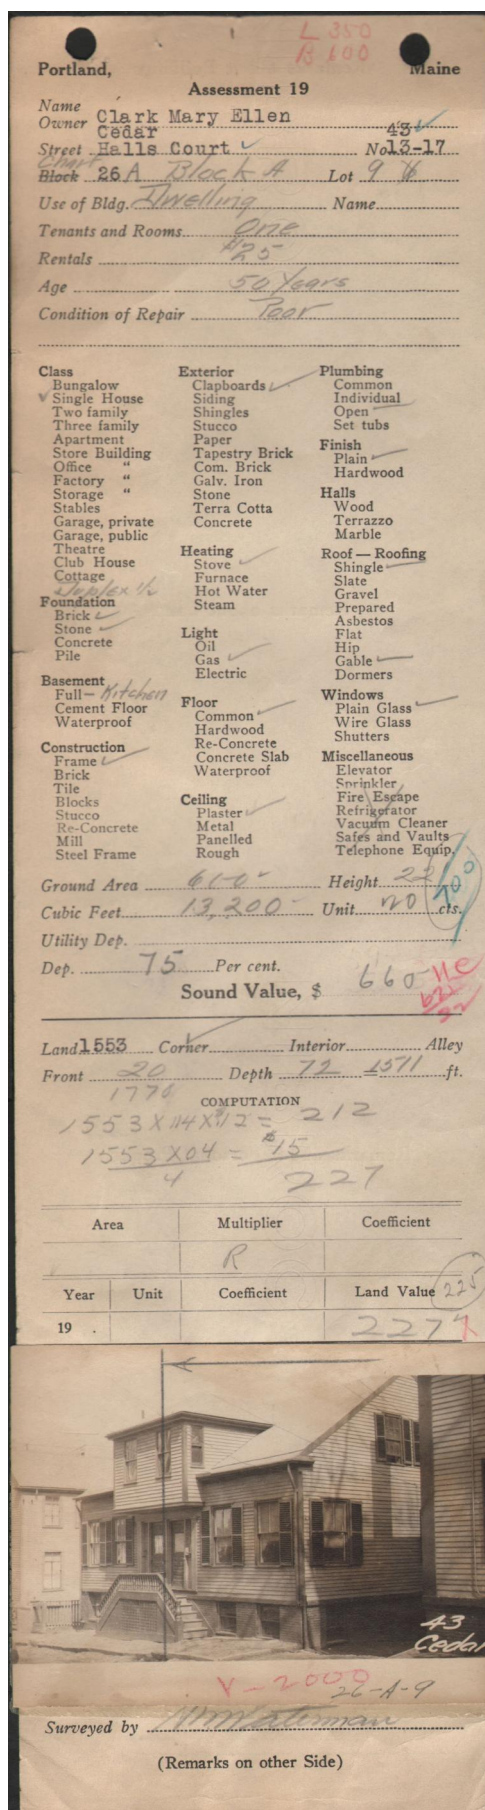 L 350
B 100
Portland, Maine
Assessment 19
Name
Owner Clark Mary Ellen
Cedar 43
Street Halls Court No 13-17
Chart
Block 26 A Block A Lot 9
Use of Bldg. Dwelling Name
Tenants and Rooms One
Rentals $25
Age 50 Years
Condition of Repair Poor
Class
Bungalow
Single House
Two family
Three family
Apartment
Store Building
Office "
Factory "
Storage "
Stables
Garage, private
Garage, public
Theatre
Club House
Cottage
Duplex 1/2
Foundation
Brick
Stone
Concrete
Pile
Basement
Full - Kitchen
Cement Floor
Waterproof
Construction
Frame
Brick
Tile
Blocks
Stucco
Re-Concrete
Mill
Steel Frame
Exterior
Clapboards
Siding
Shingles
Stucco
Paper
Tapestry Brick
Com. Brick
Galv. Iron
Stone
Terra Cotta
Concrete
Heating
Stove
Furnace
Hot Water
Steam
Light
Oil
Gas
Electric
Floor
Common
Hardwood
Re-Concrete
Concrete Slab
Waterproof
Ceiling
Plaster
Metal
Panelled
Rough
Plumbing
Common
Individual
Open
Set tubs
Finish
Plain
Hardwood
Halls
Wood
Terrazzo
Marble
Roof — Roofing
Shingle
Slate
Gravel
Prepared
Asbestos
Flat
Hip
Gable
Dormers
Windows
Plain Glass
Wire Glass
Shutters
Miscellaneous
Elevator
Sprinkler
Fire Escape
Refrigerator
Vacuum Cleaner
Safes and Vaults
Telephone Equip.
Ground Area 610 Height 22
700
Cubic Feet 13,200 Unit 20 cts.
Utility Dep.
Dep. 75 Per cent.
Sound Value, $ 660
Land 1553 Corner Interior Alley
Front 20 Depth 72 1571 ft.
1770
COMPUTATION
1553 X 114 X 12 = 212
1553 X 04 = $15
4 227
Area Multiplier Coefficient
R
Year Unit Coefficient Land Value 225
19 . 227
43
Cedar
V-2000
26-A-9
Surveyed by Waterman
(Remarks on other Side)